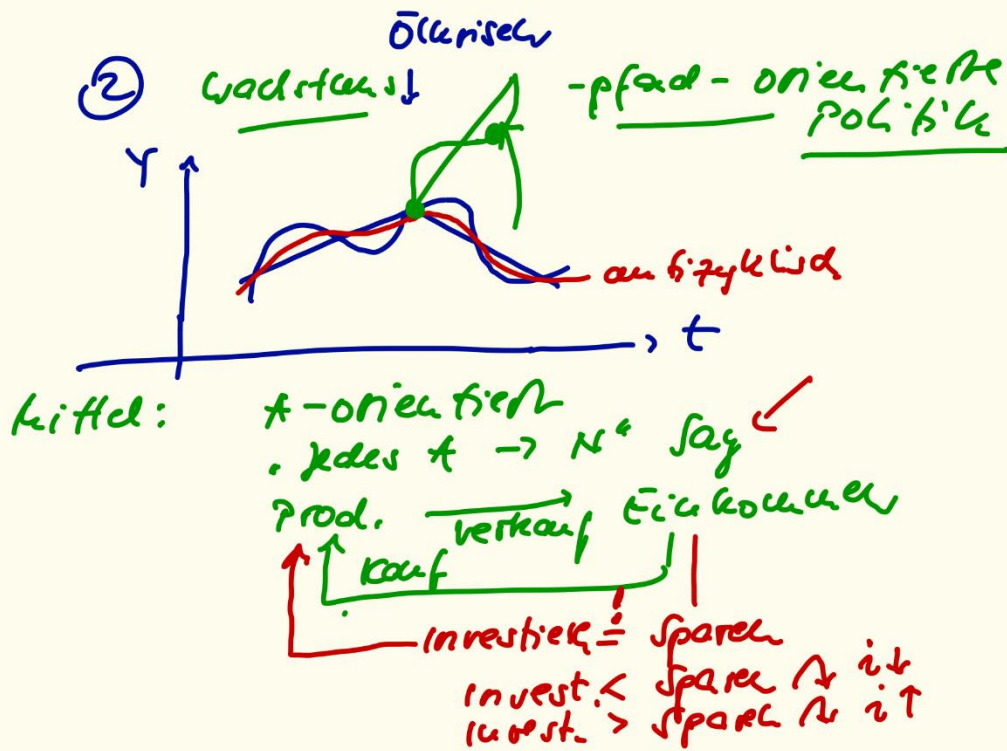 Ölkrisen
② Wachstums ↓ -pfad-orientierte
Politik
Y
antizyklisch
t
Mittel: A-orientiert
. jedes A → N" Say
Prod. verkauf Einkommen
Kauf
investieren = Sparen
invest. < Sparen → i↓
invest. > Sparen → i↑